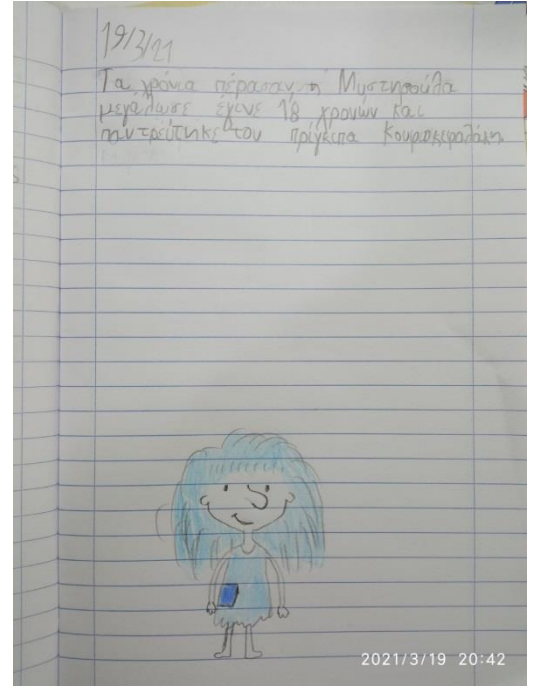 19/3/21
Τα χρόνια πέρασαν η Μυστηρούλα
μεγάλωσε έγινε 18 χρονών και
παντρεύτηκε του πρίγκιπα
2021/3/19 20:42